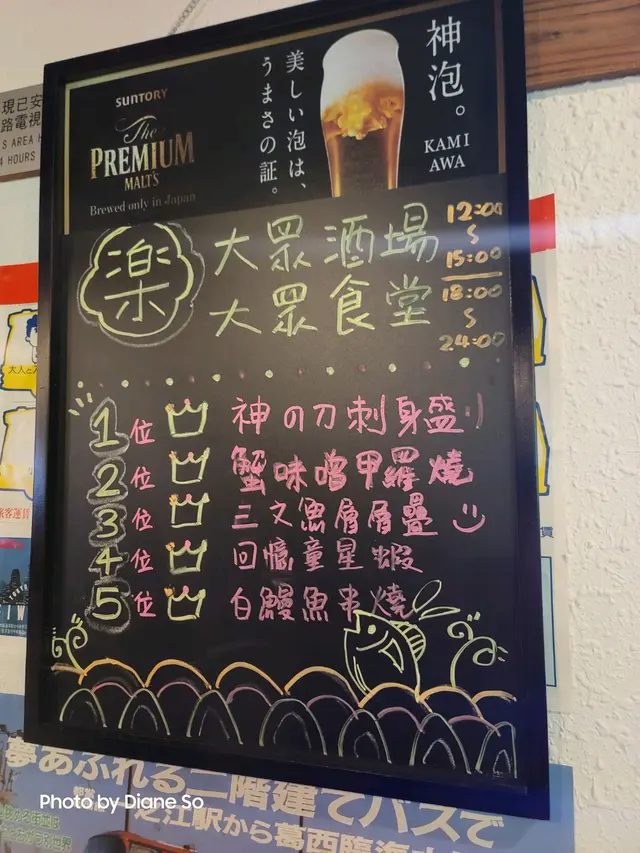 SUNTORY
The
PREMIUM
MALT'S
Brewed only in Japan
美しい泡は、
うまさの証。
神泡。
KAMI
AWA
楽
大眾酒場
大眾食堂
12:00
~
15:00
18:00
~
24:00
1位 神の刀刺身盛り
2位 蟹味噌甲羅燒
3位 三文魚層層疊
4位 回憶童星蝦
5位 白鰻魚串燒
現已安
路電視
S AREA
4 HOURS
大人
旅客運賃
夢あふれる二階建てバスで
江駅から葛西臨海
Photo by Diane So